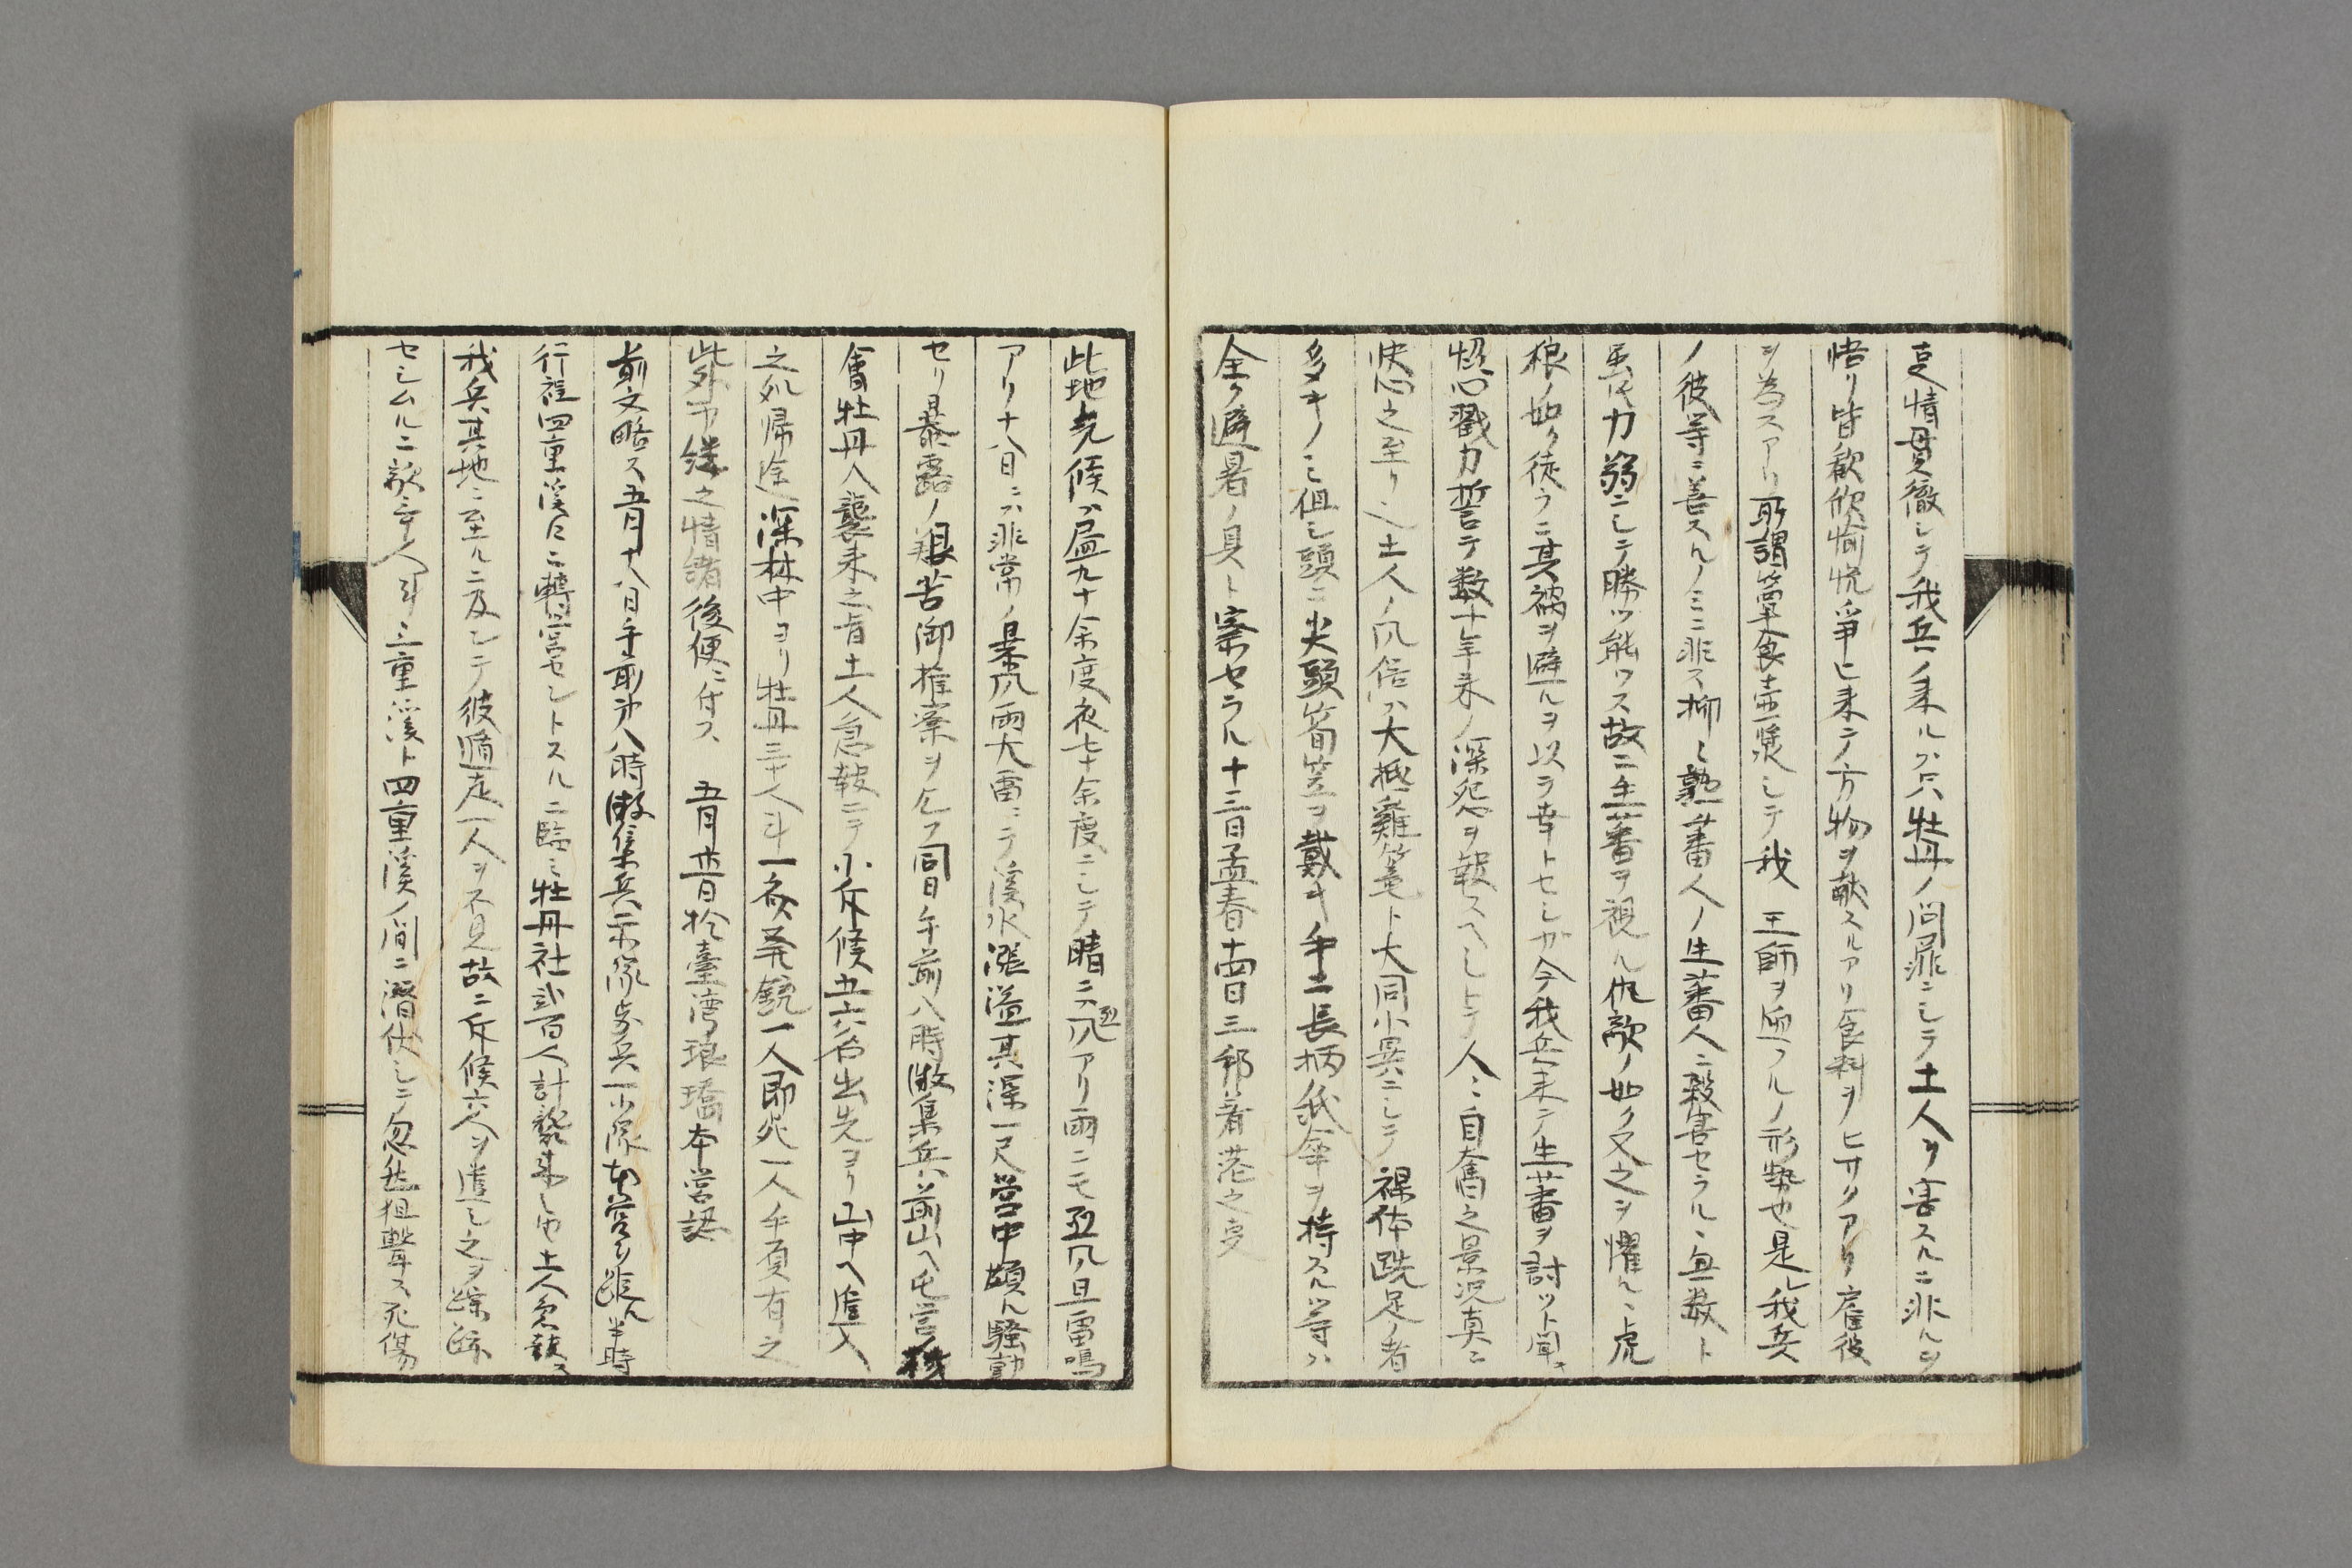 吏情貫徹シテ我兵ノ来ルハ只牡丹ノ問罪ニシテ土人ヲ害スルニ非ルヲ
悟リ皆歓欣愉悦争ヒ来テ方物ヲ献スルアリ食料ヲヒサクアリ雇役
ヲ為スアリ所謂簞食壺漿シテ我 王師ヲ迎フルノ形勢也是レ我兵
ノ彼等ニ善スルノミニ非ス抑ミ熟蕃人ノ生蕃人ニ殺害セラルヽ無数ト
虽𪜈力弱ニシテ勝ツ能ワス故ニ生蕃ヲ視ル仇敵ノ如ク又之ヲ懼ルヽ虎
狼ノ如ク徒ラニ其禍ヲ避ルヲ以ラ幸トセシガ今我兵来テ生蕃ヲ討ツト聞キ
怒心戮力誓テ数十年来ノ深怨ヲ報スヘシトテ人ミ自奮之景况真ニ
快心之至リ也土人ノ風俗ハ大抵雞篭ト大同小異ニシテ裸体跣足ノ者
多キノミ但シ頭ニ尖頭筍笠ヲ戴キ手ニ長柄紙傘ヲ持スル等ハ
全ク避暑ノ具ト察セラル十三日孟春十四日三邦着港之吏
此地気候ハ昼九十余度夜七十余度ニシテ晴ニハ烈風アリ雨ニモ烈風且雷鳴
アリ十八日ニハ非常ノ暴風雨大雷ニテ溪水漲溢其深一尺営中頗ル騒動
セリ暴露ノ艱苦御推察ヲ乞フ同日午前八時散集兵前山ヘ屯営ノ機
會牡丹人襲来之旨土人急報ニテ小斥候五六名出先ヨリ山中ヘ進入
之処帰途深林中ヨリ牡丹三十人斗一斉発銃一人即死一人手負有之
此外不縷之情諸後便ニ付ス 五月廿一日於臺湾琅𤩝本営認
前文略ス五月十八日午前第八時散集兵一分隊歩兵一小隊本営ヲ距ル半時
行程四重溪口ニ轉営セントスルニ臨ミ牡丹社弐百人計襲来シ也土人急報ス
我兵其地ニ至ルニ及シテ彼遁走一人ヲ不見故ニ斥候六人ヲ進シ之ヲ踪跡
セシムルニ敵三十人斗ミ三重溪ト四重溪ノ間ニ潜伏シテ忽然狙撃ス死傷